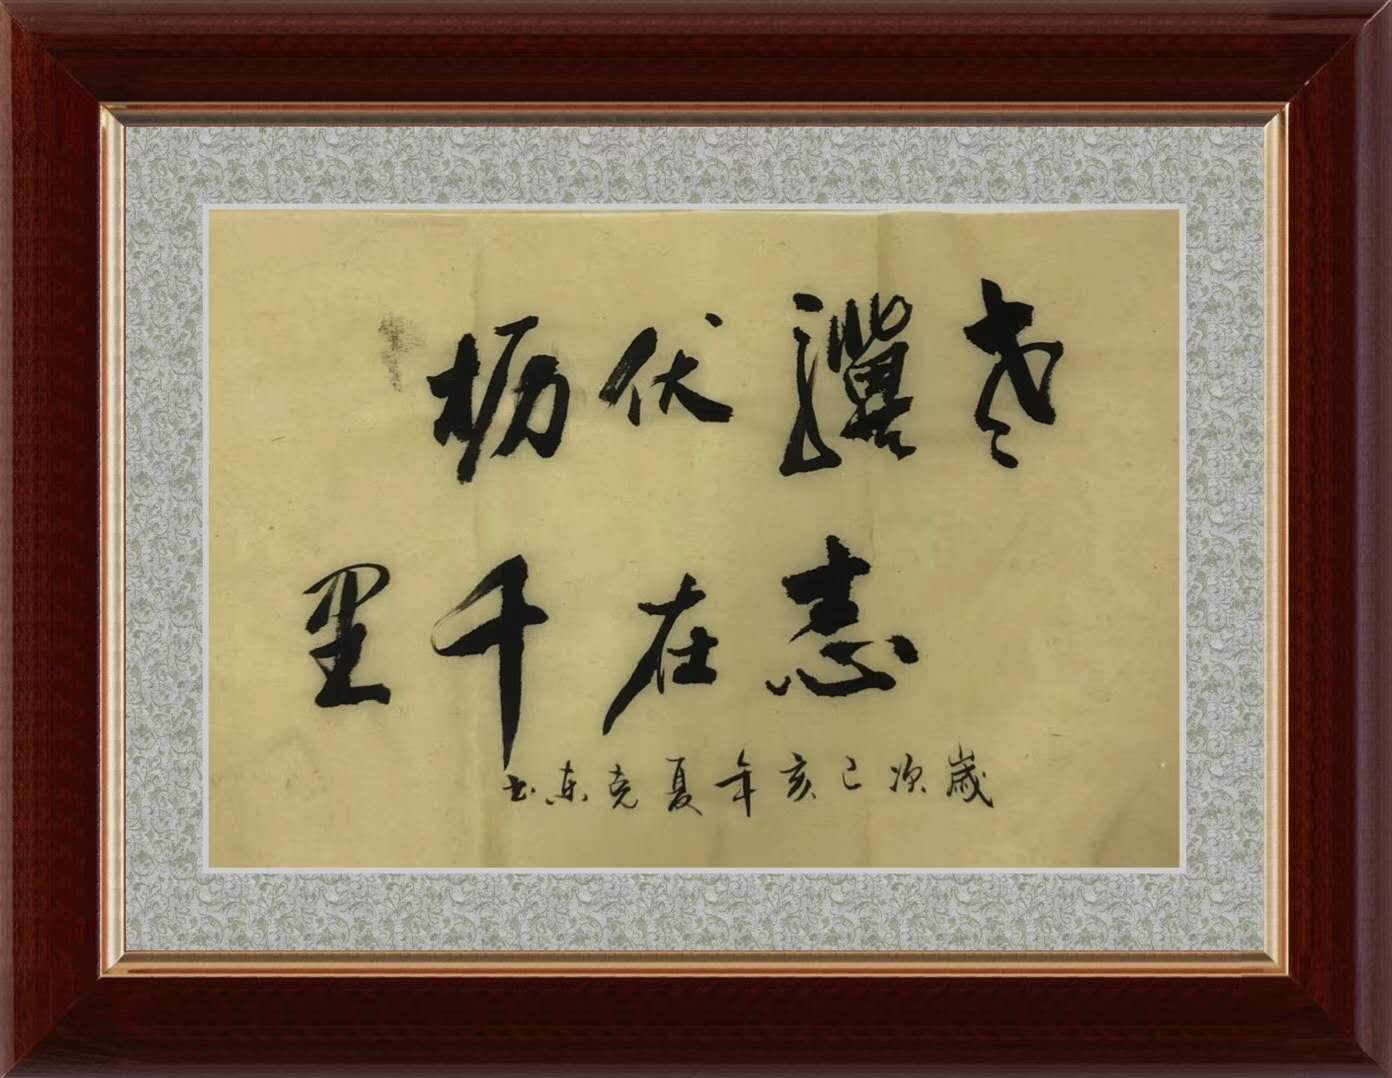 老骥伏枥
志在千里
歲次己亥年夏克东书